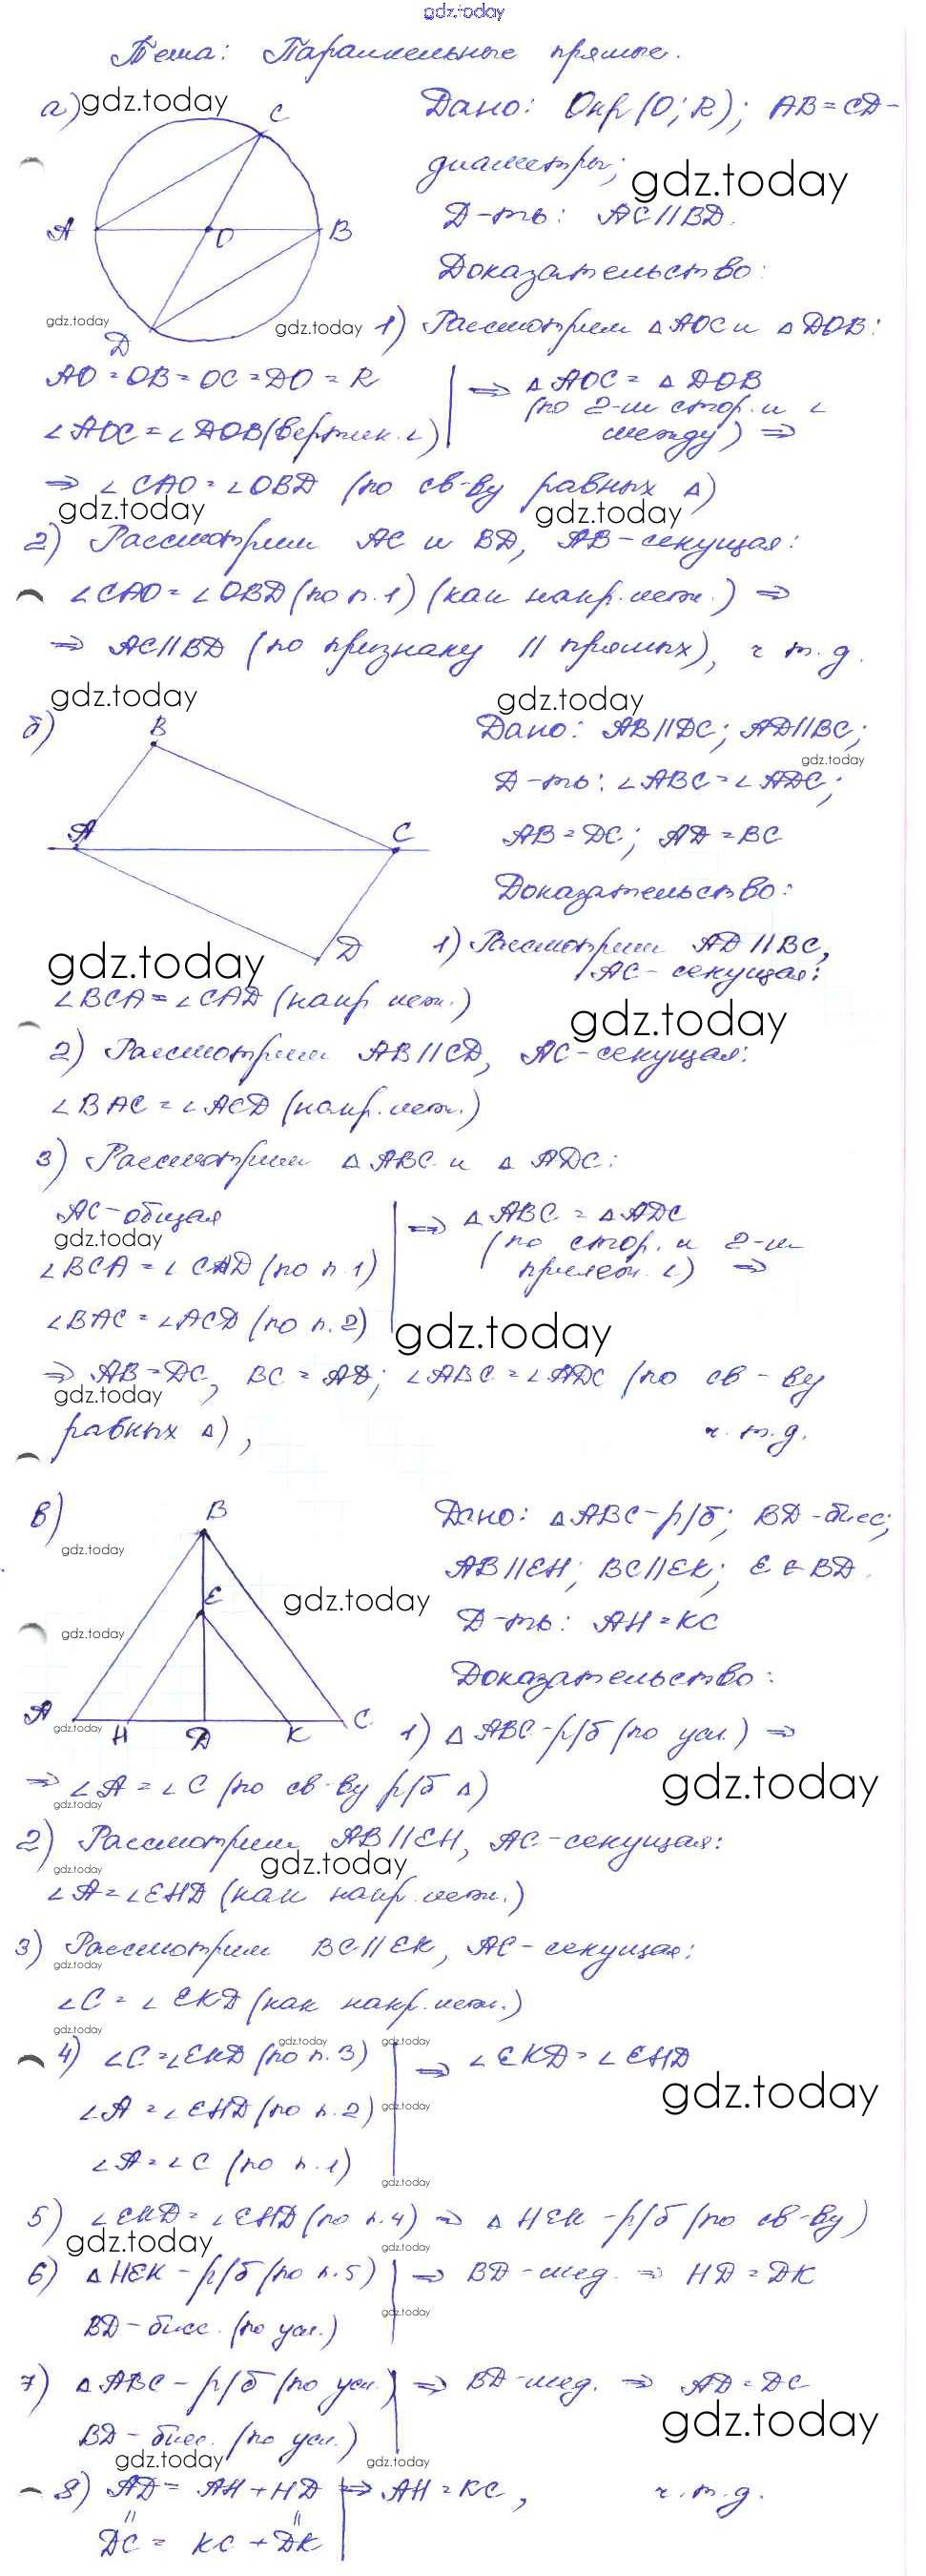 gdz.today
Тема: Параллельные прямые.
а) gdz.today
C
A
O
B
D
Дано: Окр(O; R); AB = CD –
диаметры;
gdz.today
Д-ть: AC || BD.
Доказательство:
gdz.today
gdz.today
1) Рассмотрим △AOC и △DOB:
AO = OB = OC = DO = R
∠AOC = ∠DOB (вертик. ∠)
⇒ △AOC = △DOB
(по 2-м стор. и ∠
между) ⇒
⇒ ∠CAO = ∠OBD (по св-ву равных △)
gdz.today
gdz.today
2) Рассмотрим AC и BD, AB – секущая:
∠CAO = ∠OBD (по п.1) (как накр. леж.) ⇒
⇒ AC || BD (по признаку || прямых), ч.т.д.
gdz.today
gdz.today
б)
B
A
C
D
Дано: AB || DC; AD || BC;
gdz.today
Д-ть: ∠ABC = ∠ADC;
AB = DC; AD = BC
Доказательство:
1) Рассмотрим AD || BC,
AC – секущая:
gdz.today
∠BCA = ∠CAD (накр. леж.)
gdz.today
2) Рассмотрим AB || CD, AC – секущая:
∠BAC = ∠ACD (накр. леж.)
3) Рассмотрим △ABC и △ADC:
AC – общая
gdz.today
∠BCA = ∠CAD (по п.1)
∠BAC = ∠ACD (по п.2)
⇒ △ABC = △ADC
(по стор. и 2-м
прилеж. ∠) ⇒
gdz.today
⇒ AB = DC, BC = AD; ∠ABC = ∠ADC (по св-ву
gdz.today
равных △), ч.т.д.
в)
B
E
A
H
D
K
C
gdz.today
gdz.today
gdz.today
gdz.today
Дано: △ABC – р/б; BD – бисс;
AB || EH; BC || EK; E ∈ BD.
Д-ть: AH = KC
Доказательство:
1) △ABC – р/б (по усл.) ⇒
⇒ ∠A = ∠C (по св-ву р/б △)
gdz.today
gdz.today
2) Рассмотрим AB || EH, AC – секущая:
gdz.today
gdz.today
∠A = ∠EHD (как накр. леж.)
3) Рассмотрим BC || EK, AC – секущая:
gdz.today
∠C = ∠EKD (как накр. леж.)
gdz.today
gdz.today
gdz.today
4) ∠C = ∠EKD (по п.3)
∠A = ∠EHD (по п.2)
∠A = ∠C (по п.1)
⇒ ∠EKD = ∠EHD
gdz.today
gdz.today
gdz.today
5) ∠EKD = ∠EHD (по п.4) ⇒ △HEK – р/б (по св-ву)
gdz.today
gdz.today
6) △HEK – р/б (по п.5)
BD – бисс. (по усл.)
⇒ BD – мед. ⇒ HD = DK
gdz.today
7) △ABC – р/б (по усл.)
BD – бисс. (по усл.)
⇒ BD – мед. ⇒ AD = DC
gdz.today
gdz.today
gdz.today
8) AD = AH + HD
|| ||
DC = KC + DK
⇒ AH = KC, ч.т.д.